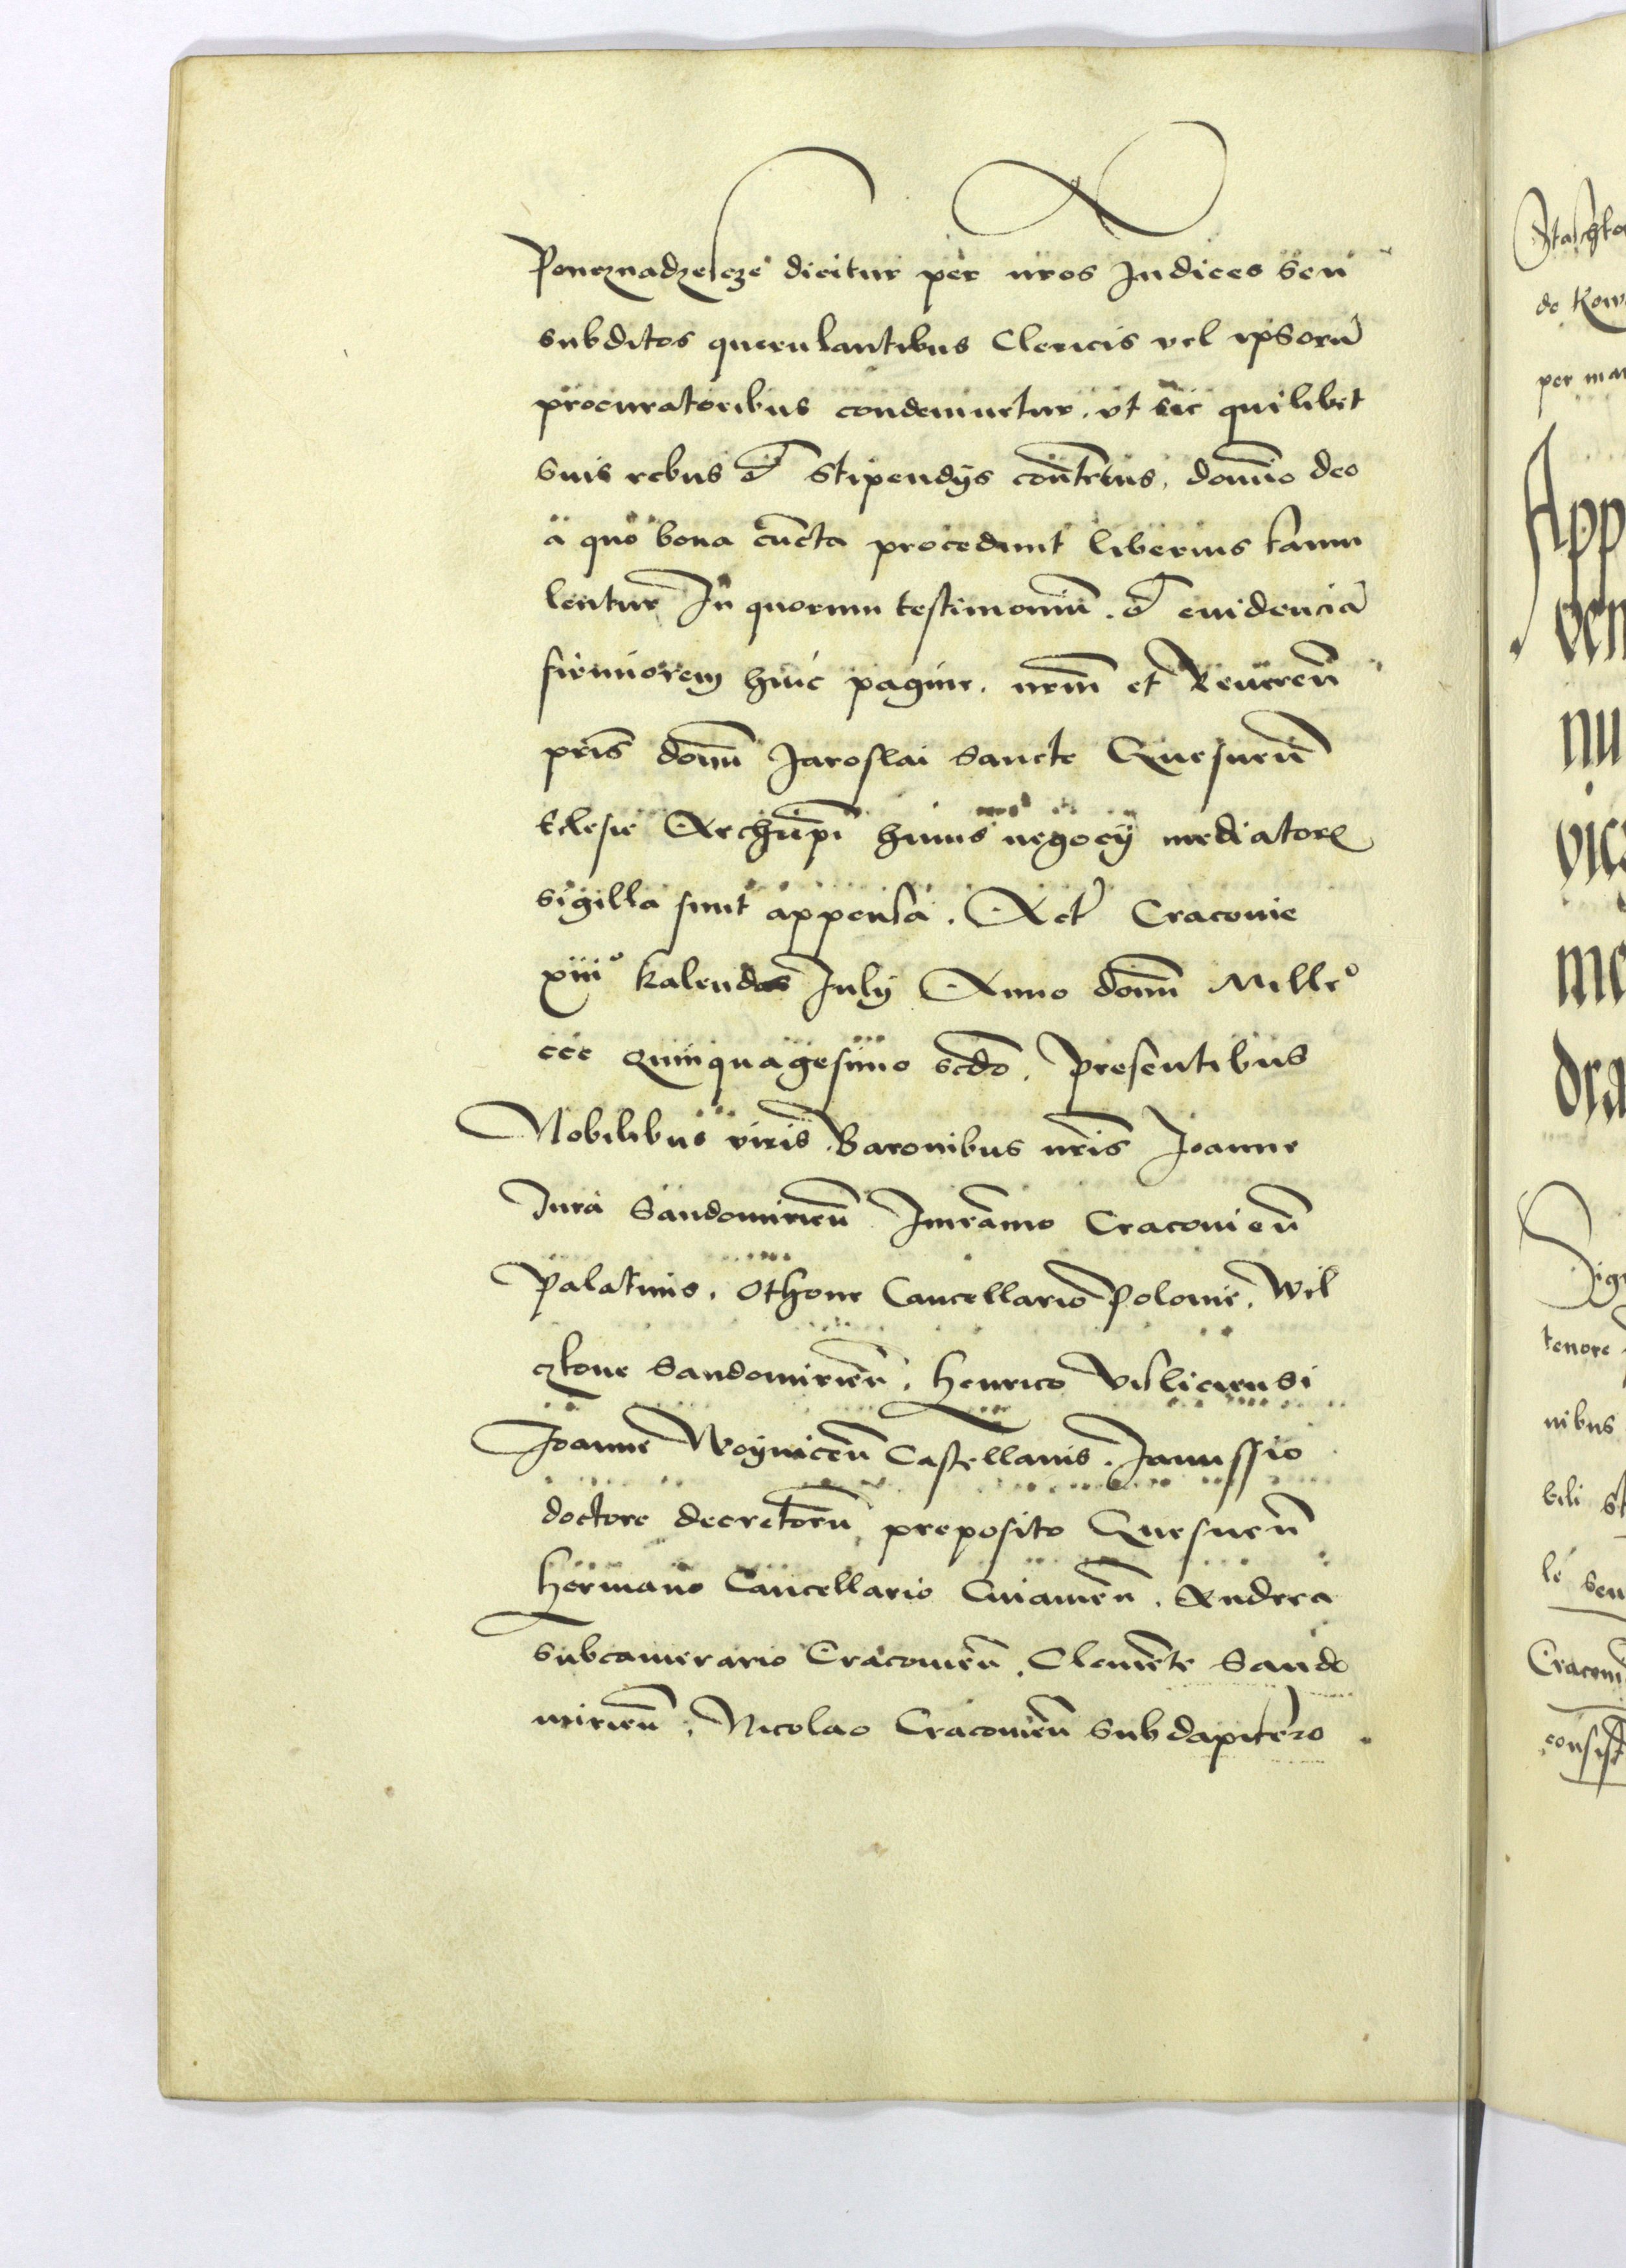 Poneznadzescze dicitur per nros Judices seu
subditos querulantibus Clericis vel ipsorū
procuratoribus condemnetur. vt sic quilibet
suis rebus et stipendijs contentus, domīo deo
a quo bona cūcta procedunt liberius famu
lentur In quorum testimoniū. et euidenciā
firmiorem huic pagine. nrm̄ et Reuereñ
pris̄ domī Jaroslai sancte Gnesneñ
Eclesie Archiep̄i huius negocij mediatoris
sigilla sunt appensa. Act̄ Cracouie
xiii° kalendas Julij Anno domī Mill°
ccc quinquagesimo scdo. presentibus
Nobilibus viris Baronibus nr̄is Joanne
Jura Sandomirieñ Imramo Cracouieñ
Palatinis. Othone Cancellario Polonie. Wil
cztone Sandomirieñ. Henrico Visliciensi
Joanne Woyniceñ Castellanis. Janussio
doctore decretorū preposito Gnesneñ
Hermano Cancellario Cuiauieñ. Andrea
Subcamerario Cracouieñ. Clemēte Sando
mirieñ. Nicolao Cracouieñ subdapifero
de Kow
per man
App
ven
nu
vic
me
dra
Sig
tenore
nibus
bili st
le seu
Cracoui
consist